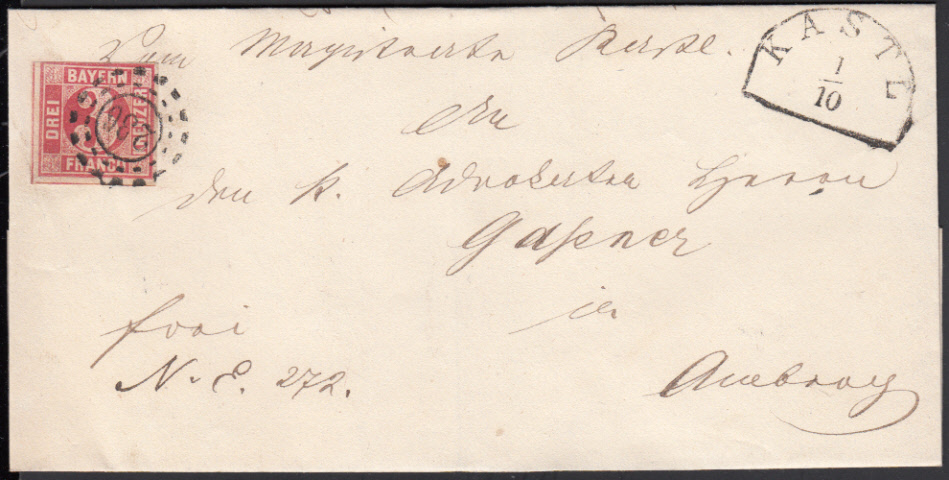 Vom Magistrate Kastl.
An
den k. Advokaten Herrn
Gaßner
in
Amberg
frei
N. E. 272.
BAYERN
DREI
KREUZER
FRANCO
3
KASTL
1
10